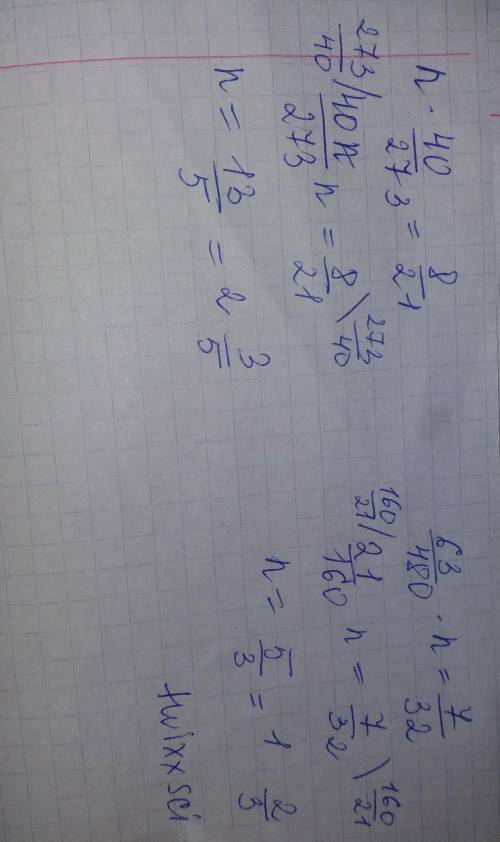 n · 40/273 = 8/21
273/40 / 40/273 n = 8/21 \ 273/40
n = 13/5 = 2 3/5
63/480 · n = 7/32
160/21 / 21/160 n = 7/32 \ 160/21
n = 5/3 = 1 2/3